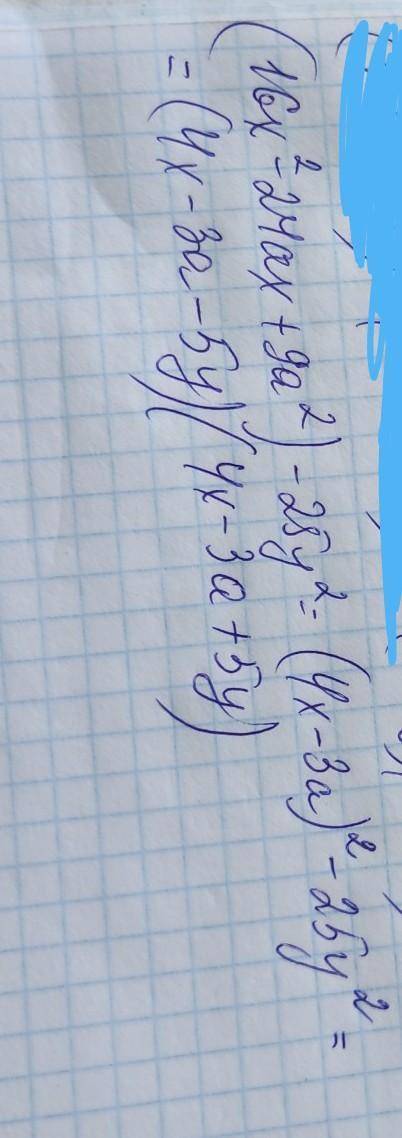 (16x² - 24ax + 9a²) - 25y² = (4x - 3a)² - 25y² =
= (4x - 3a - 5y)(4x - 3a + 5y)